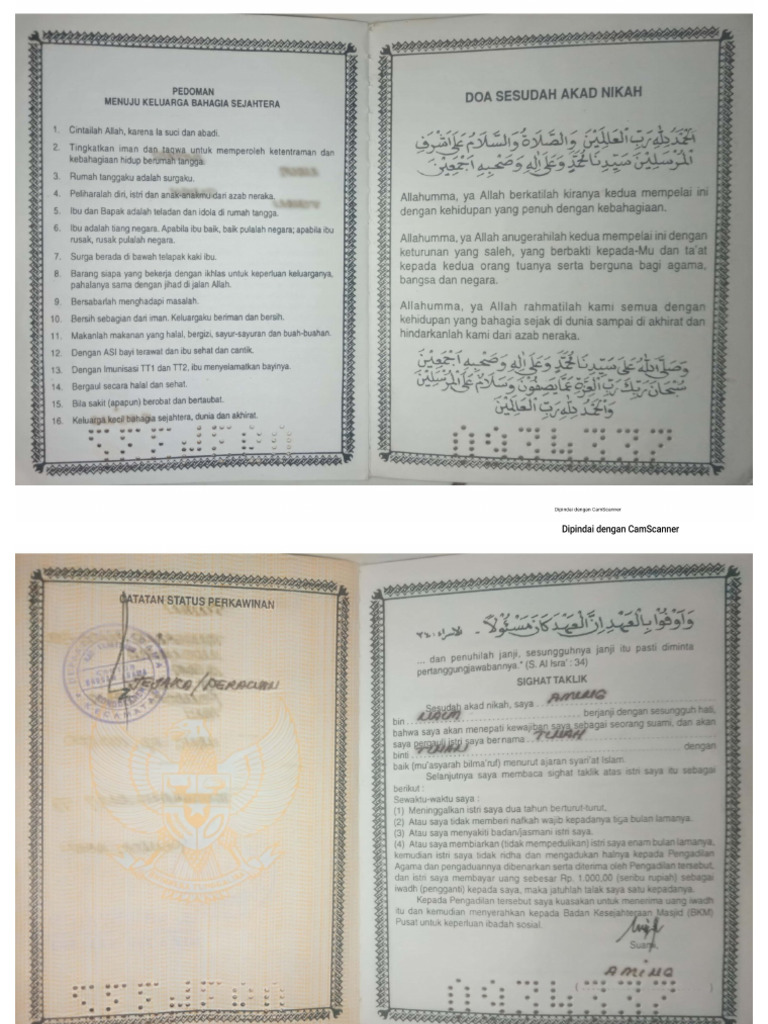 PEDOMAN
MENUJU KELUARGA BAHAGIA SEJAHTERA
1. Cintailah Allah, karena Ia suci dan abadi.
2. Tingkatkan iman dan taqwa untuk memperoleh ketentraman dan
kebahagiaan hidup berumah tangga.
3. Rumah tanggaku adalah surgaku.
4. Peliharalah diri, istri dan anak-anakmu dari azab neraka.
5. Ibu dan Bapak adalah teladan dan idola di rumah tangga.
6. Ibu adalah tiang negara. Apabila ibu baik, baik pulalah negara; apabila ibu
rusak, rusak pulalah negara.
7. Surga berada di bawah telapak kaki ibu.
8. Barang siapa yang bekerja dengan ikhlas untuk keperluan keluarganya,
pahalanya sama dengan jihad di jalan Allah.
9. Bersabarlah menghadapi masalah.
10. Bersih sebagian dari iman. Keluargaku beriman dan bersih.
11. Makanlah makanan yang halal, bergizi, sayur-sayuran dan buah-bushan.
12. Dengan ASI bayi terawat dan ibu sehat dan cantik.
13. Dengan Imunisasi TT1 dan TT2, ibu menyelamatkan bayinya.
14. Bergaul secara halal dan sehat.
15. Bila sakit (apapun) berobat dan bertaubat.
16. Keluarga kecil bahagia sejahtera, dunia dan akhirat.
DOA SESUDAH AKAD NIKAH
اَلْحَمْدُ لِلّٰهِ رَبِّ الْعَالَمِيْنَ وَالصَّلَاةُ وَالسَّلَامُ عَلَى اَشْرَفِ
الْمُرْسَلِيْنَ سَيِّدِنَا مُحَمَّدٍ وَعَلَى اٰلِهِ وَصَحْبِهِ اَجْمَعِيْنَ
Allahumma, ya Allah berkatilah kiranya kedua mempelai ini
dengan kehidupan yang penuh dengan kebahagiaan.
Allahumma, ya Allah anugerahilah kedua mempelai ini dengan
keturunan yang saleh, yang berbakti kepada-Mu dan ta'at
kepada kedua orang tuanya serta berguna bagi agama,
bangsa dan negara.
Allahumma, ya Allah rahmatilah kami semua dengan
kehidupan yang bahagia sejak di dunia sampai di akhirat dan
hindarkanlah kami dari azab neraka.
وَصَلَّى اللّٰهُ عَلَى سَيِّدِنَا مُحَمَّدٍ وَعَلَى اٰلِهِ وَصَحْبِهِ اَجْمَعِيْنَ
سُبْحَانَ رَبِّكَ رَبِّ الْعِزَّةِ عَمَّا يَصِفُوْنَ وَسَلَامٌ عَلَى الْمُرْسَلِيْنَ
وَالْحَمْدُ لِلّٰهِ رَبِّ الْعَالَمِيْنَ
Dipindai dengan CamScanner
Dipindai dengan CamScanner
CATATAN STATUS PERKAWINAN
JEJAKA/PERAWAN
KECAMATAN
وَاَوْفُوْا بِالْعَهْدِ اِنَّ الْعَهْدَ كَانَ مَسْئُوْلًا - الاسراء : ٣٤
... dan penuhilah janji, sesungguhnya janji itu pasti diminta
pertanggungjawabannya." (S. Al Isra' : 34)
SIGHAT TAKLIK
Sesudah akad nikah, saya AMING
bin berjanji dengan sesungguh hati,
bahwa saya akan menepati kewajiban saya sebagai seorang suami, dan akan
saya pergauli istri saya bernama
binti dengan
baik (mu'asyarah bilma'ruf) menurut ajaran syari'at Islam.
Selanjutnya saya membaca sighat taklik atas istri saya itu sebagai
berikut :
Sewaktu-waktu saya :
(1) Meninggalkan istri saya dua tahun berturut-turut,
(2) Atau saya tidak memberi nafkah wajib kepadanya tiga bulan lamanya.
(3) Atau saya menyakiti badan/jasmani istri saya.
(4) Atau saya membiarkan (tidak mempedulikan) istri saya enam bulan lamanya,
kemudian istri saya tidak ridha dan mengadukan halnya kepada Pengadilan
Agama dan pengaduannya dibenarkan serta diterima oleh Pengadilan tersebut,
dan istri saya membayar uang sebesar Rp. 1.000,00 (seribu rupiah) sebagai
iwadh (pengganti) kepada saya, maka jatuhlah talak saya satu kepadanya.
Kepada Pengadilan tersebut saya kuasakan untuk menerima uang iwadh
itu dan kemudian menyerahkan kepada Badan Kesejahteraan Masjid (BKM)
Pusat untuk keperluan ibadah sosial.
Suami,
AMING